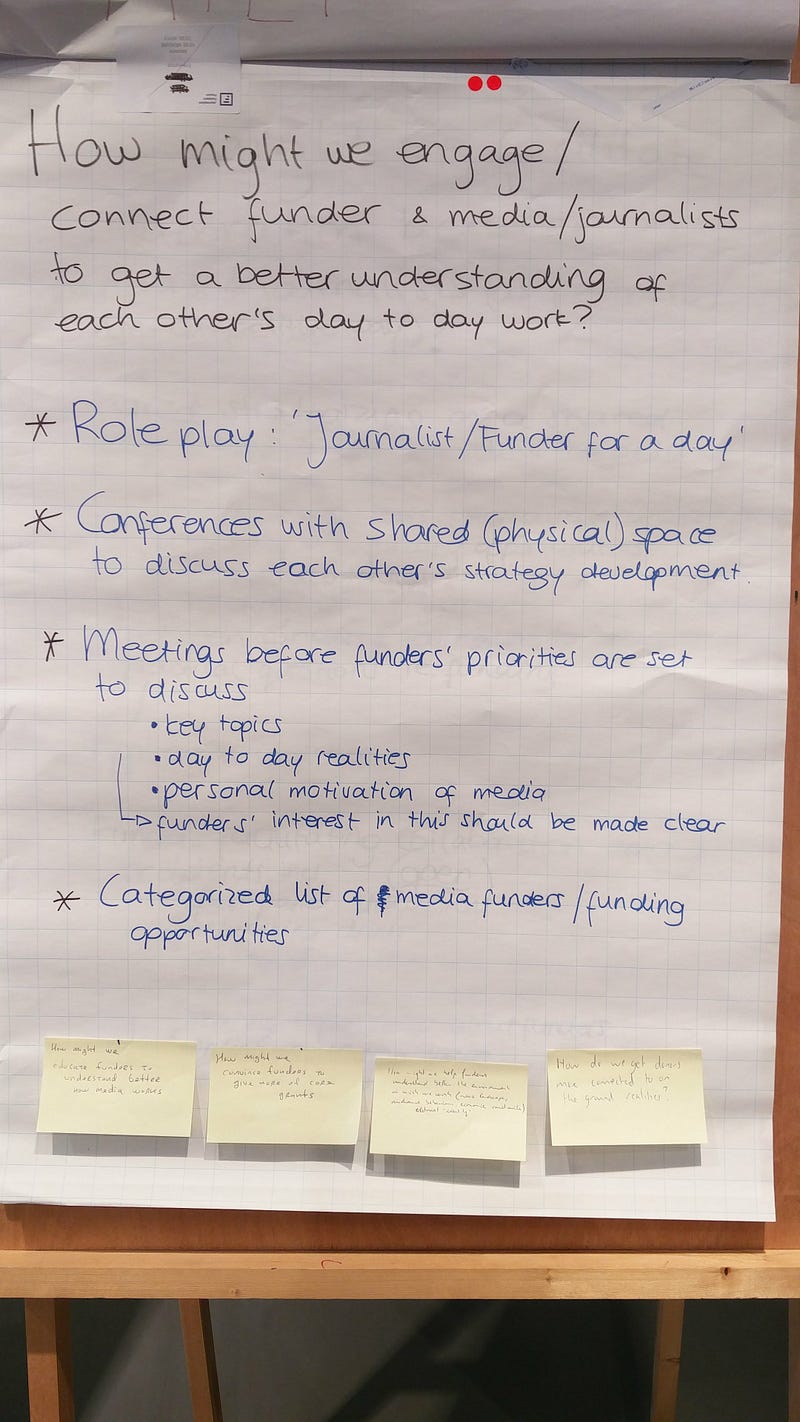 How might we engage/
connect funder & media/journalists
to get a better understanding of
each other's day to day work?
* Role play: 'Journalist/Funder for a day'
* Conferences with shared (physical) space
to discuss each other's strategy development.
* Meetings before funders' priorities are set
to discuss
• key topics
• day to day realities
• personal motivation of media
↳ funders' interest in this should be made clear
* Categorized list of media funders/funding
opportunities
How might we
educate funders to
understand better
how media works
How might we
convince funders to
give more of core
grants
How might we help funders
understand better the environment
in which we work
How do we get donors
more connected to on
the ground realities?